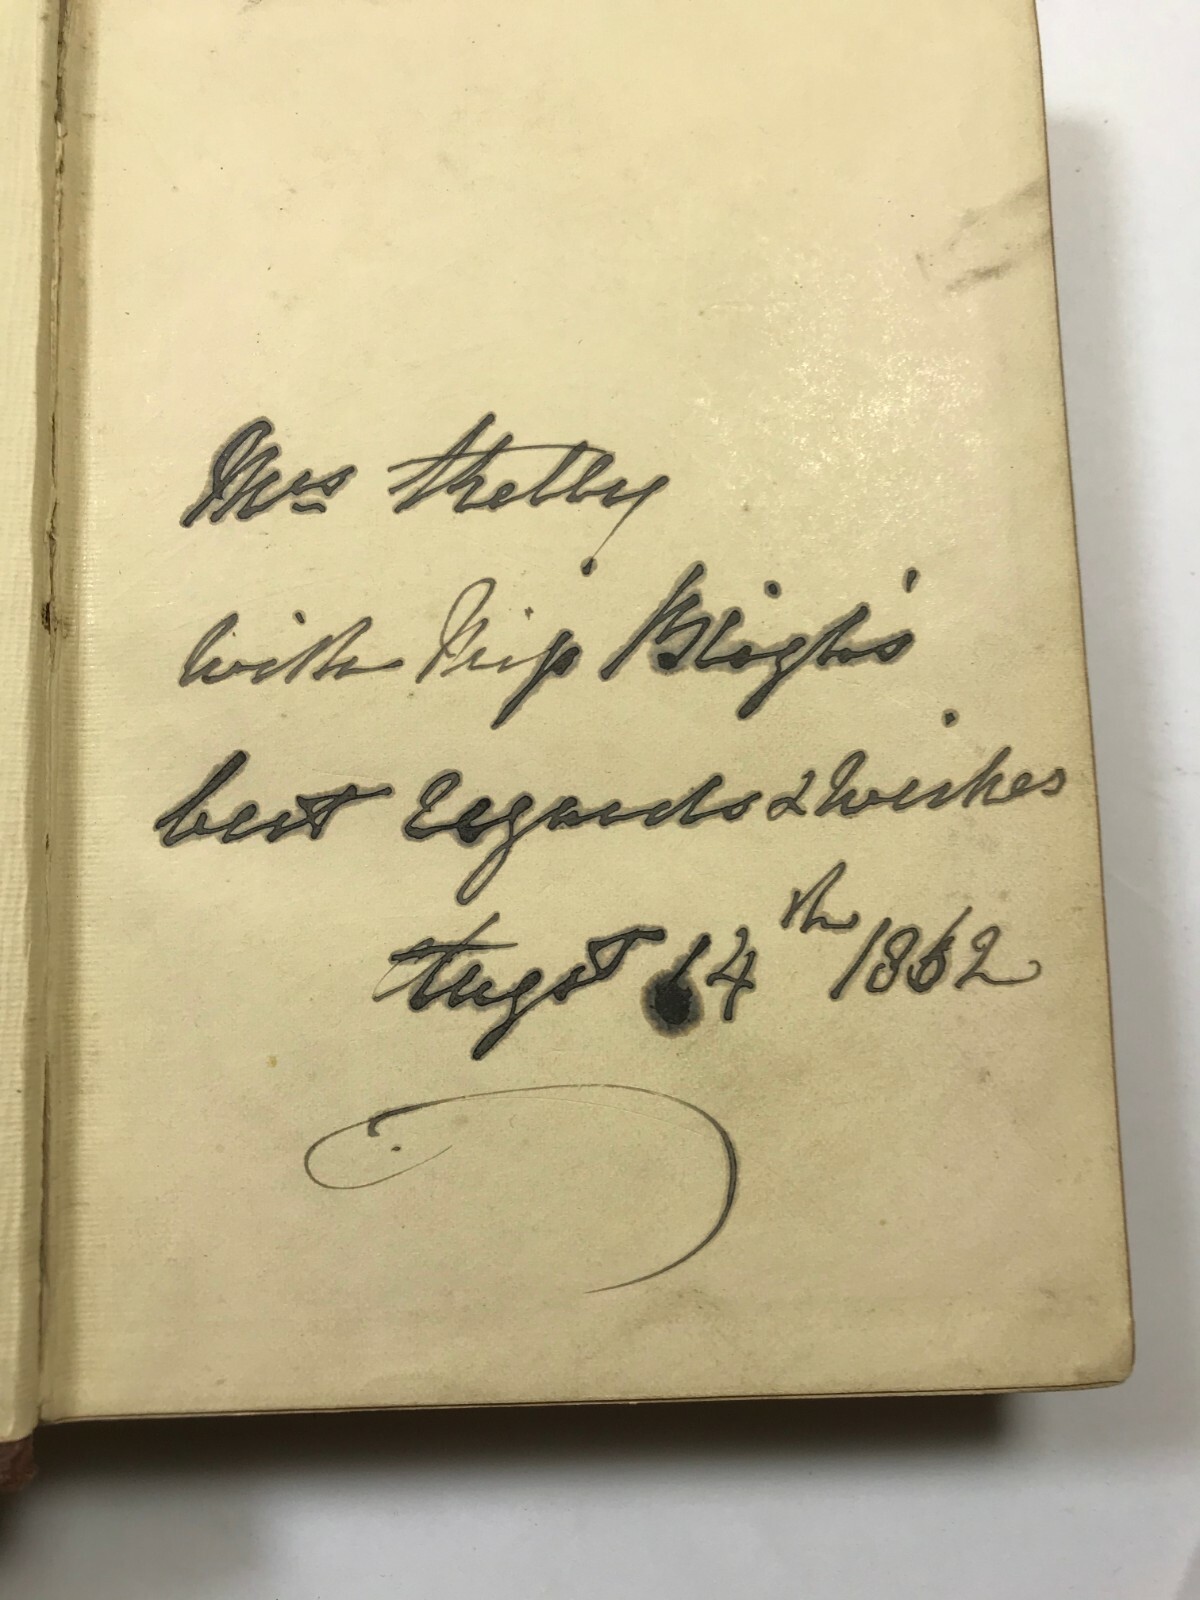 Mrs Shelby
with Miss Bligh's
best regards & wishes
Augst 14th 1862